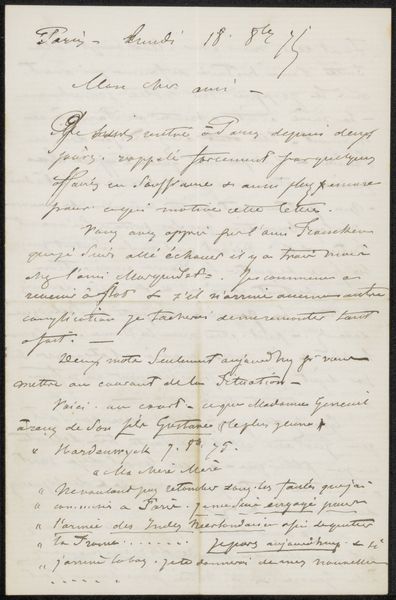 Paris - Lundi 18. 8bre 75
Mon cher ami -
Je suis rentré à Paris depuis deux
jours. rappelé forcément par quelques
affaires en souffrance & aussi plus encore
pour ce qui motive cette lettre.
Vous avez appris par l'ami
que je suis allé échouer il y a trois mois
chez l'ami Je commence à
revenir à flot & s'il n'arrive aucune autre
complication je tacherai de me remonter tout
à fait. -
Deux mots seulement aujourd'huy pr vous
mettre au courant de la situation -
Voici au court - ce que Madame
a reçu de son fils Gustave (le plus jeune)
" Harderwyck 7. 8bre 75.
" Ma chère Mère
" Ne voulant pas retomber dans les fautes que j'ai
" commis à Paris je me suis engagé pour
" l'armée des Indes Neerlandaises afin de quitter
" la France ........ Je pars aujourd'huy & si
" j'arrive là bas je te donnerai de mes nouvelles
" - - - - -